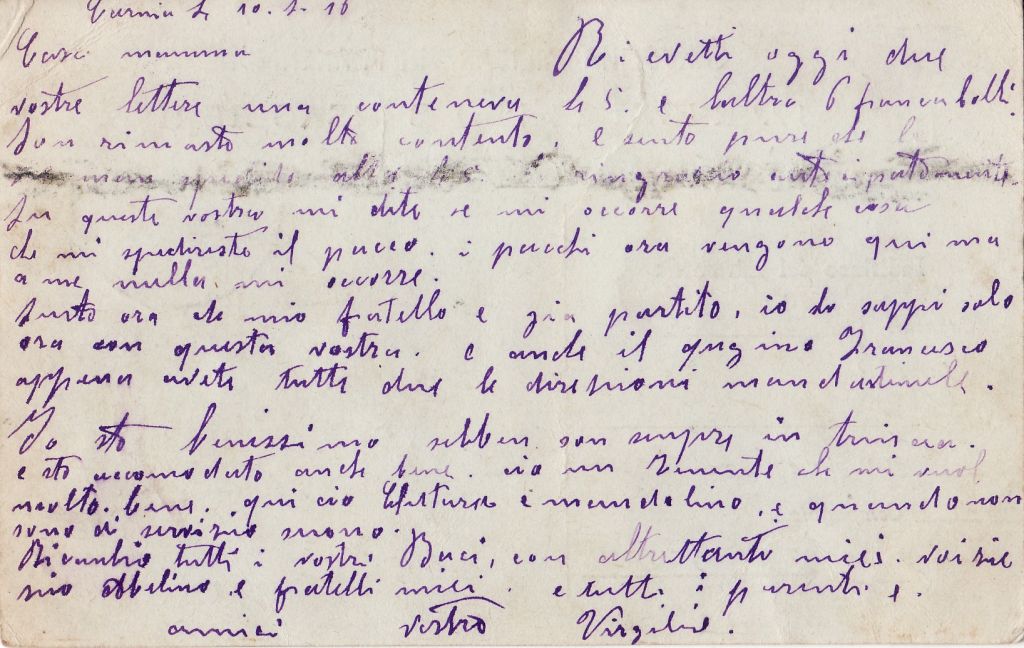 Carnia li 10. 1. 16
Cara mamma Ricevetti oggi due
vostre lettere una conteneva le 5. e laltra 6 francobolli
son rimasto molto contento. e sento pure che
spedito altre le 5. ringrazio anticipatamente.
In questa vostra mi dite se mi occorre qualche cosa
che mi spedireste il pacco. i pacchi ora vengono qui ma
a me nulla mi occorre.
sento ora che mio fratello e gia partito, io lo sappi solo
ora con questa vostra. e anche il qugino Francesco
appena avete tutte due le direzioni mandatimele.
Io sto benissimo sebben son sempre in trincea.
e sto accomodato anche bene. cio un Tenente che mi vuol
molto. bene. qui cio e mandolino, e quando non
sono di servizio suono.
Ricambio tutti i vostri Baci, con altrettanti miei. voi zie
zio Abelino e fratelli miei. e tutti i parenti e.
amici vostro Virgilio.